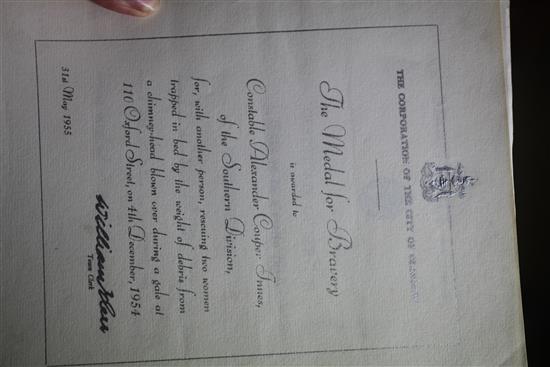 THE CORPORATION OF THE CITY OF GLASGOW
The Medal for Bravery
is awarded to
Constable Alexander Couper Innes,
of the Southern Division,
for, with another person, rescuing two women
trapped in bed by the weight of debris from
a chimney-head blown over during a gale at
110 Oxford Street, on 4th December, 1954
William Kerr
Town Clerk
31st May 1955